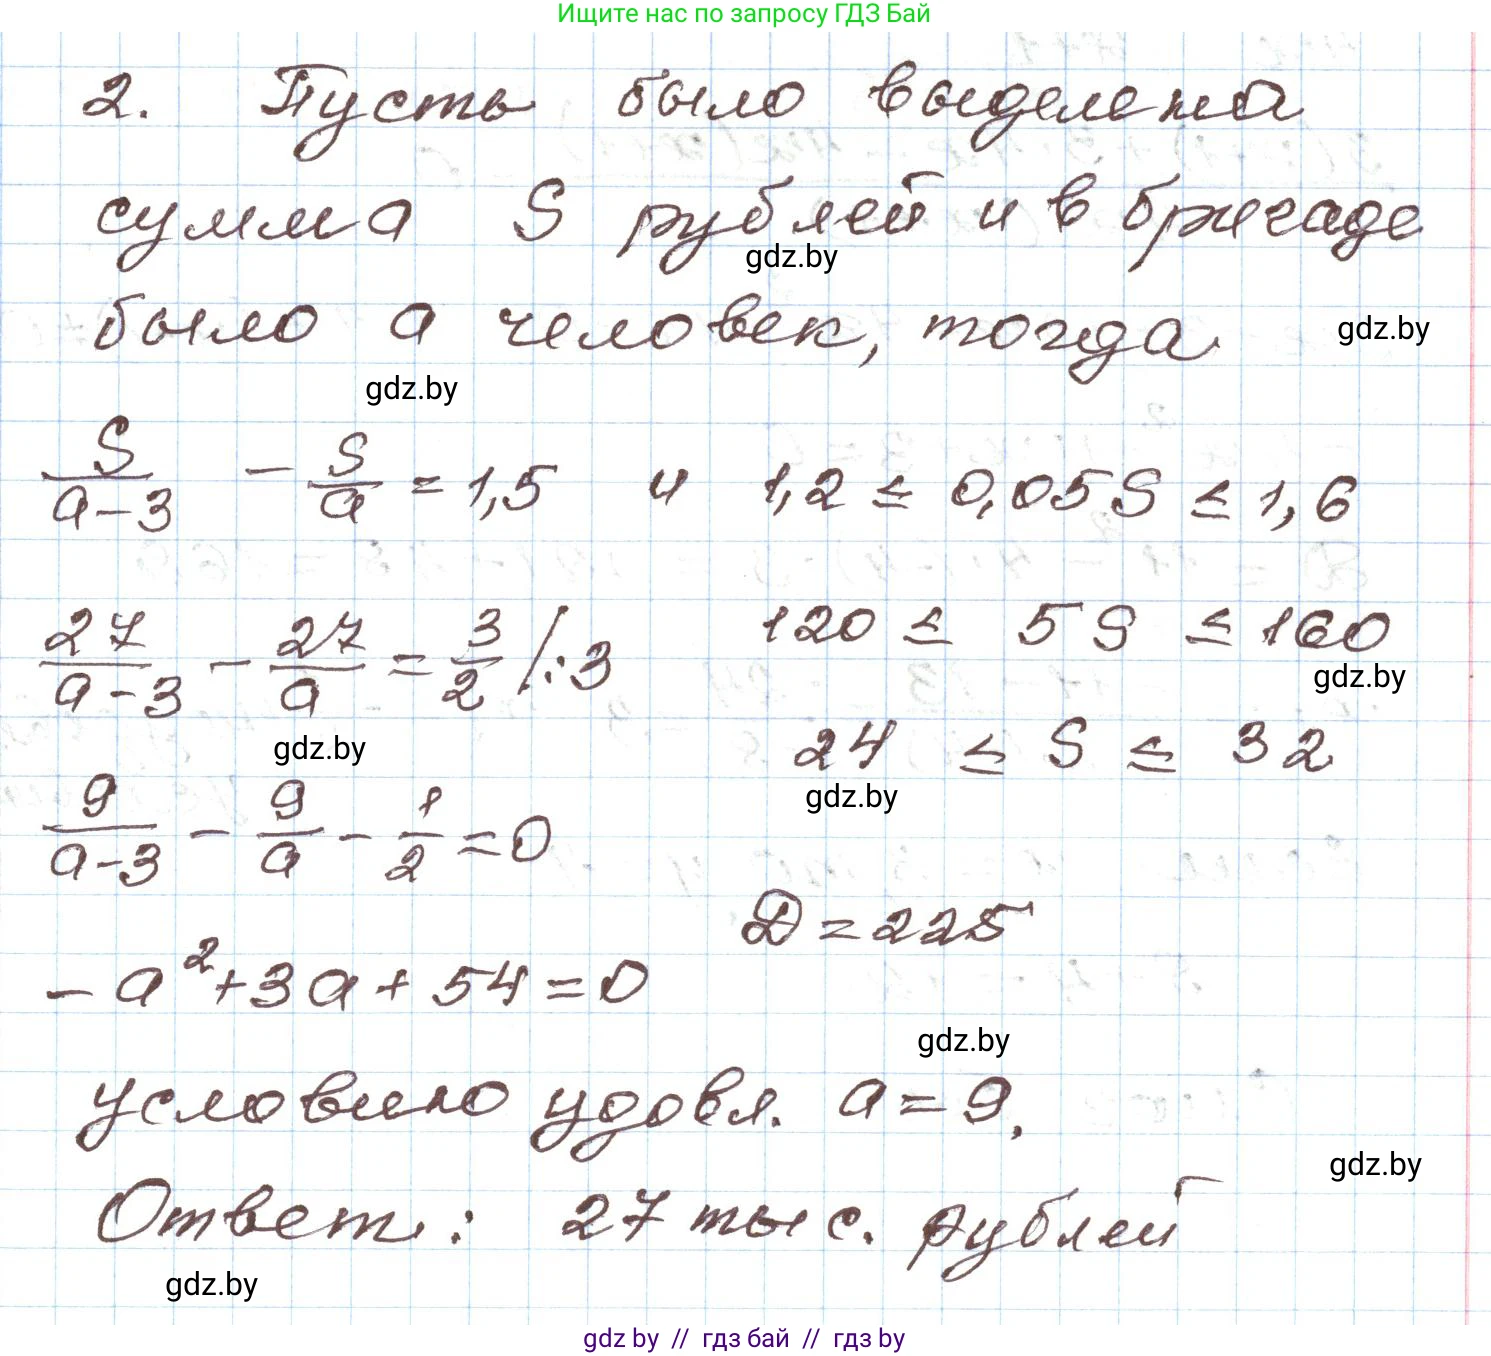 Ищите нас по запросу ГДЗ Бай
2. Пусть было выделена
сумма S рублей и в бригаде
gdz.by
было a человек, тогда
gdz.by
gdz.by
S/(a-3) - S/a = 1,5 и 1,2 ≤ 0,05S ≤ 1,6
27/(a-3) - 27/a = 3/2 /:3 120 ≤ 5S ≤ 160
gdz.by
gdz.by
24 ≤ S ≤ 32
gdz.by
9/(a-3) - 9/a - 1/2 = 0
D = 225
-a²+3a+54=0
gdz.by
условию удовл. a=9.
gdz.by
Ответ: 27 тыс. рублей
gdz.by
gdz by // гдз бай // гдз by